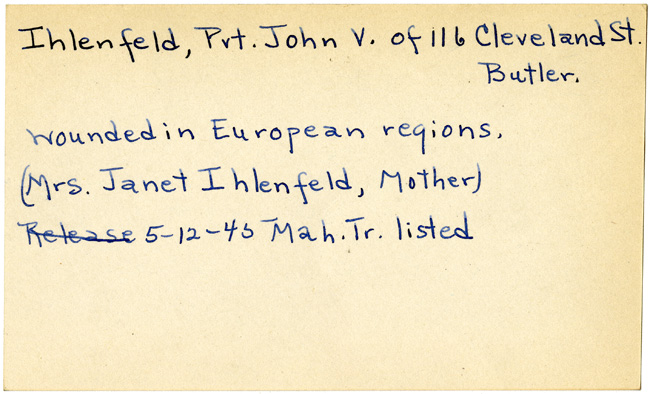 Ihlenfeld, Pvt. John V. of 116 Cleveland St.
Butler.
wounded in European regions.
(Mrs. Janet Ihlenfeld, Mother)
Release 5-12-45 Mah. Tr. listed